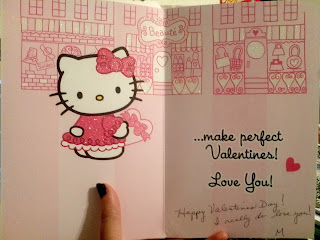 Beauté
...make perfect
Valentines!
Love You!
Happy Valentines Day!
I really do love you!
M